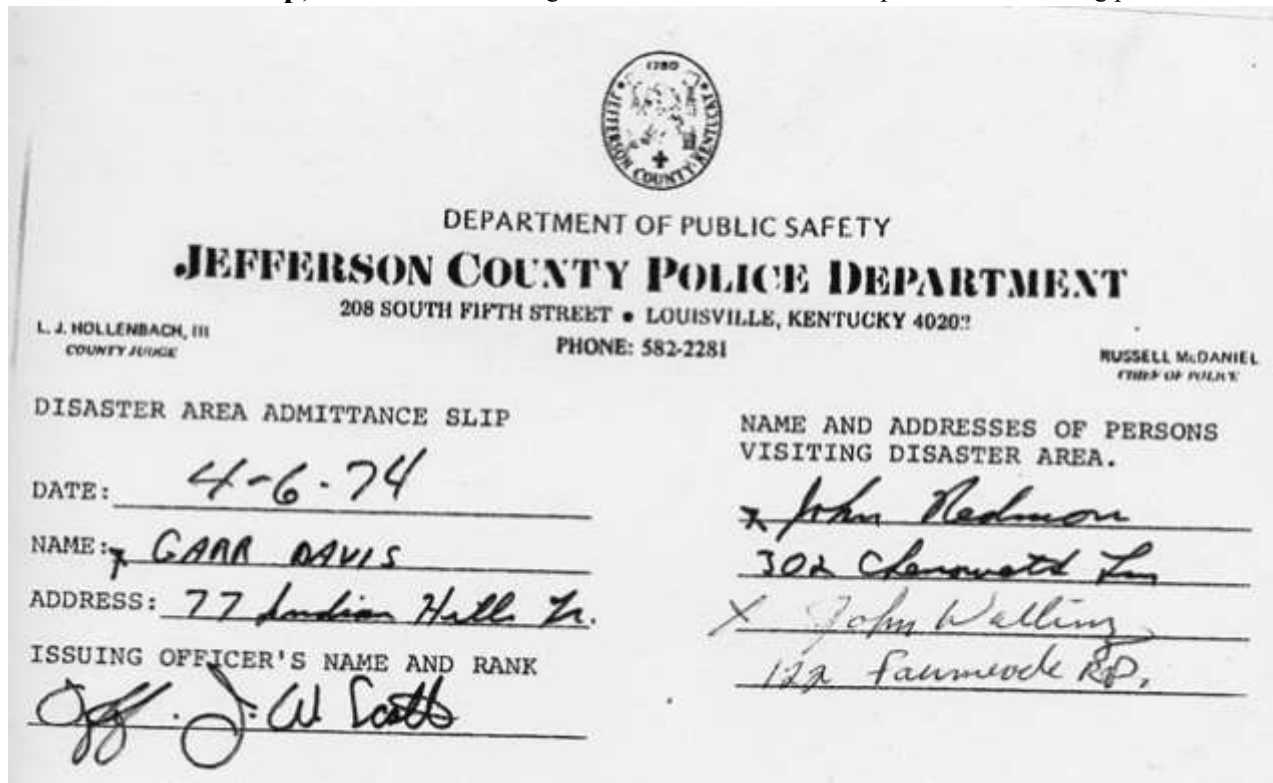 1780
JEFFERSON COUNTY KENTUCKY
DEPARTMENT OF PUBLIC SAFETY
JEFFERSON COUNTY POLICE DEPARTMENT
208 SOUTH FIFTH STREET • LOUISVILLE, KENTUCKY 40202
PHONE: 582-2281
L. J. HOLLENBACH, III
COUNTY JUDGE
RUSSELL McDANIEL
CHIEF OF POLICE
DISASTER AREA ADMITTANCE SLIP
DATE: 4-6-74
NAME: x GARR DAVIS
ADDRESS: 77 Indian Hills Tr.
ISSUING OFFICER'S NAME AND RANK
Off. J. W. Scott
NAME AND ADDRESSES OF PERSONS
VISITING DISASTER AREA.
x John Redmon
302 Ln
X John Walling
122 RD.